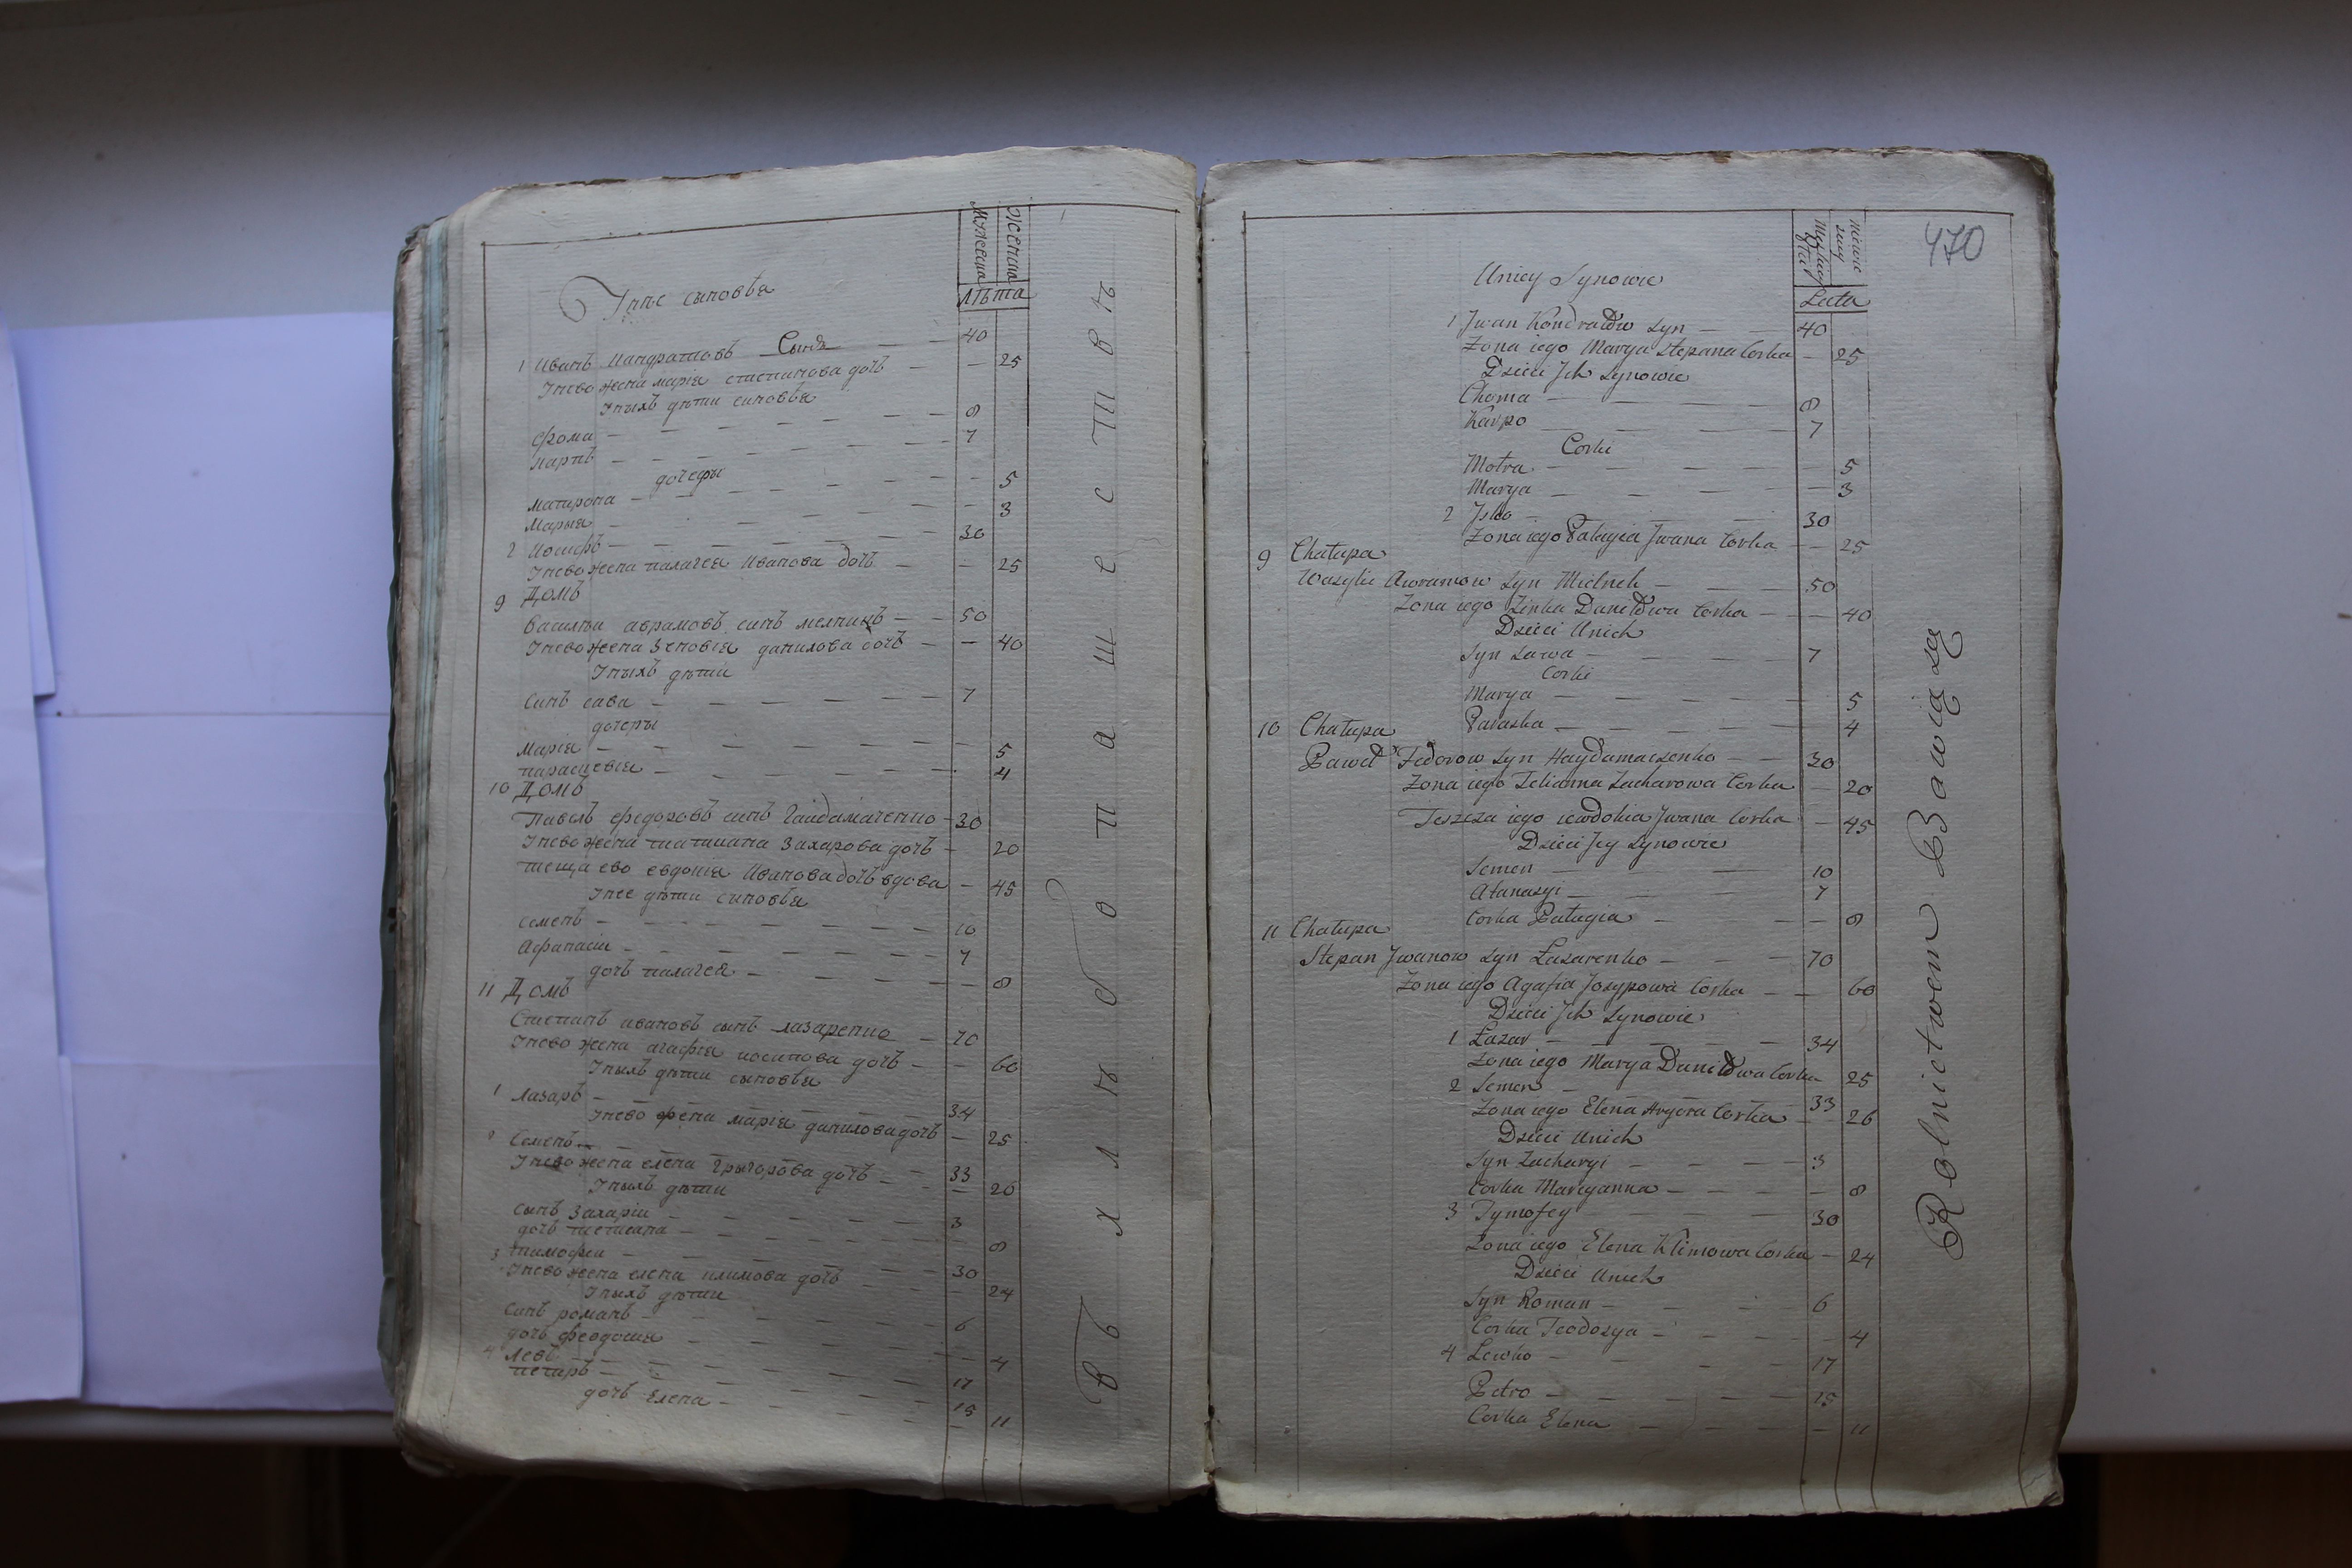 Мужеска
Женска
Лѣта
Унıхъ сыновья
1 Иванъ Кондратовъ Сынъ — 40
Унево жена марія степанова дочъ — — 25
Унıхъ дѣти синовья
фома — 8
карпъ — 7
дочеры
матрона — 5
Марья — 3
2 Иосифъ — 30
Унево жена палагея Иванова дочъ — — 25
9 Домъ
Василıи аврамовъ синъ мелникъ — 50
Унево жена Зеновıя данилова дочъ — — 40
Унıхъ дѣти
Синъ сава — 7
дочеры
Марıя — 5
параскевıя — 4
10 Домъ
Павелъ федоровъ синъ Гаидамаченко — 30
Унево жена татиана Захарова дочъ — 20
теща ево евдокıя Иванова дочъ вдова — 45
Унее дѣти синовья
Семенъ — 10
Афанасıи — 7
дочъ палагея — 8
11 Домъ
Степанъ ивановъ сынъ лазаренко — 70
Унево жена агафıя иосипова дочъ — — 60
Унıхъ дѣти сыновья
1 Лазаръ — 34
Унево жена марıя данилова дочъ — 25
2 Семенъ — 33
Унево жена елена Григорова дочъ — — 26
Унıхъ дѣти
Сынъ Захарıи — 3
дочъ татиана — 8
3 тимофеи — 30
Унево жена елена климова дочъ — — 24
Унıхъ дѣти
Синъ романъ — 6
дочъ феодосıя — 4
4 Левъ — 17
петаръ — 15
дочъ Елена — 11
въ хлѣбопашествѣ
470
Męskiey płci
niewie
sciey
Lata
U niey Synowie
1 Jwan Kondratow Syn — 40
Zona iego Marya Stepana Corka — 25
Dzieci Jch Synowie
Choma — 8
Karpo — 7
Corki
Motra — 5
Marya — 3
2 Jsko — 30
Zona iego Palagia Jwana Corka — 25
9 Chałupa
Wasylie Awramow Syn Mielnik — 50
Zona iego Zinka Daniłowa Corka — 40
Dzieci U nich
Syn Sawa — 7
Corki
Marya — 5
Paraska — 4
10 Chałupa
Paweł Fedorow Syn Haydamaczenko — 30
Zona iego Tetianna Zacharowa Corka — 20
Teszcza iego iewdokia Jwana Corka — 45
Dzieci Jey Synowie
Semen — 10
Atanazyi — 7
Corka Palagia — 8
11 Chałupa
Stepan Jwanow Syn Łazarenko — 70
Zona iego Agafia Josypowa Corka — 60
Dzieci Jch Synowie
1 Łazar — 34
Zona iego Marya Daniłowa Corka 25
2 Semen — 33
Zona iego Elena Hrygora Corka — 26
Dzieci U nich
Syn Zacharyi — 3
Corka Maryanna — 8
3 Tymofey 30
Zona iego Elena Klimowa Corka — 24
Dzieci U nich
Syn Roman — 6
Corka Teodozya — 4
4 Lewko — 17
Petro — 15
Corka Elena — 11
Rolnictwem Bawią się